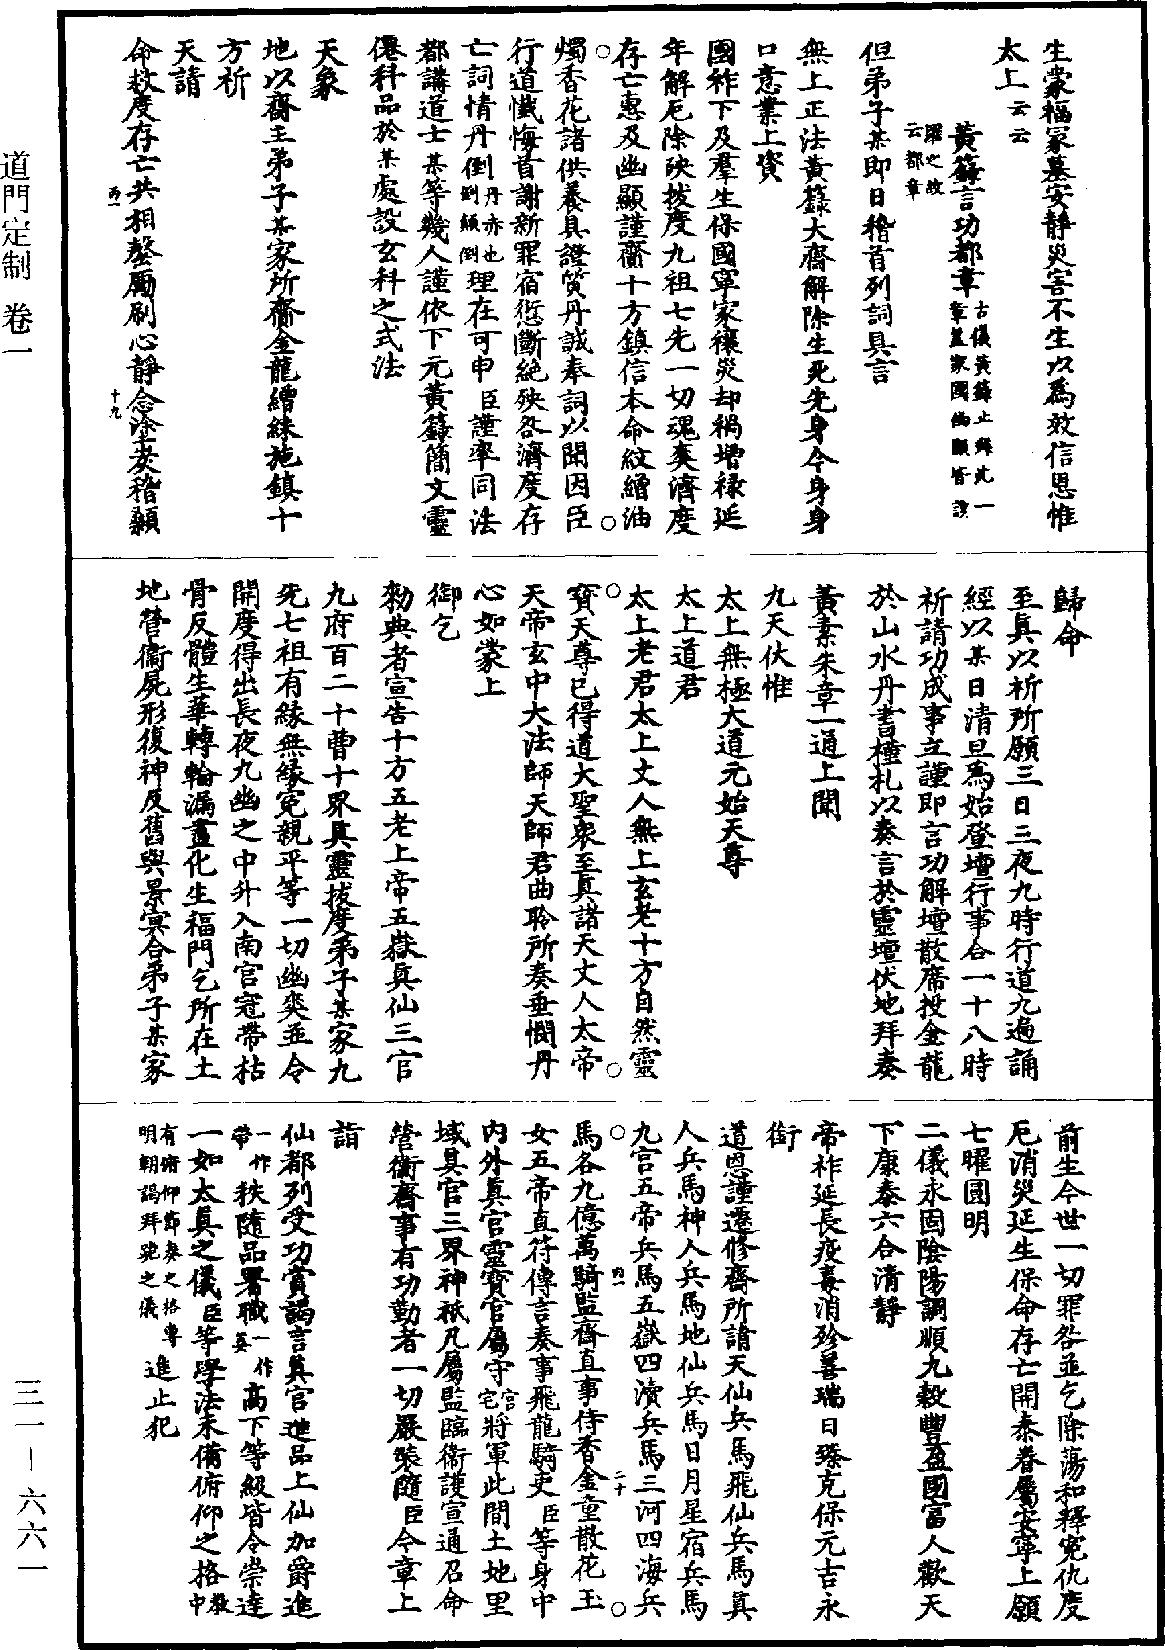 生蒙福冢墓安靜災害不生以爲效信恩惟
太上云云
黃籙言功都章古儀黃籙止舜此一章蓋家國幽顯皆該
躍之故云都章
但弟子某即日稽首列詞具言
無上正法黃籙大齋解除生死先身今身身
口意業上資
國祚下及羣生保國寧家禳災却禍增祿延
年解厄除殃拔度九祖七先一切魂爽濟度
存亡惠及幽顯謹齎十方鎮信本命紋繒油
燭香花諸供養具證質丹誠奉詞以聞因臣
行道懺悔首謝新罪宿愆斷絕殃咎濟度存
亡詞情丹倒丹亦也倒顛倒理在可申臣謹率同法
都講道士某等幾人謹依下元黃籙簡文靈
僊科品於某處設玄科之式法
天象
地以齋主弟子某家所齎金龍繒綵施鎮十
方祈
天請
命救度存亡共相磬勵刷心靜念塗炭稽顙
丙一 十九
歸命
至眞以祈所願三日三夜九時行道九遍誦
經以某日清旦爲始登壇行事合一十八時
祈請功成事立謹即言功解壇散席投金龍
於山水丹書槿札以奏言於靈壇伏地拜奏
黃素朱章一通上聞
九天伏惟
太上無極大道元始天尊
太上道君
太上老君太上丈人無上玄老十方自然靈
寶天尊已得道大聖衆至眞諸天丈人太帝
天帝玄中大法師天師君曲聆所奏垂憫丹
心如蒙上
御乞
勑典者宣告十方五老上帝五嶽眞仙三官
九府百二十曹十界眞靈拔度弟子某家九
先七祖有緣無緣寃親平等一切幽爽並令
開度得出長夜九幽之中升入南宮冠帶枯
骨反體生華轉輪漏盡化生福門乞所在土
地營衞屍形復神反舊與景寞合弟子某家
前生今世一切罪咎並乞除蕩和釋寃仇度
厄消災延生保命存亡開泰眷屬安寧上願
七曜圓明
二儀永固陰陽調順九穀豐盈國富人歡天
下康泰六合清靜
帝祚延長疫毒消殄善瑞日臻克保元吉永
銜
道恩謹遷修齋所請天仙兵馬飛仙兵馬眞
人兵馬神人兵馬地仙兵馬日月星宿兵馬
九宮五帝兵馬五嶽四瀆兵馬三河四海兵
丙一 二十
馬各九億萬騎監齋直事侍香金童散花玉
女五帝直符傳言奏事飛龍騎吏臣等身中
內外眞官靈寶官屬守宅官將軍此間土地里
域眞官三界神祇凡屬監臨衞護宣通召命
營衞齋事有功勤者一切嚴裝隨臣今章上
詣
仙都列受功賞謁言眞官進品上仙加爵進
一作帶秩隨品署職一作受高下等級皆令崇達
一如太眞之儀臣等學法未備俯仰之格教中
有俯仰節奏之格專明朝謁拜跪之儀進止犯
道門定制 卷一
三一－六六一